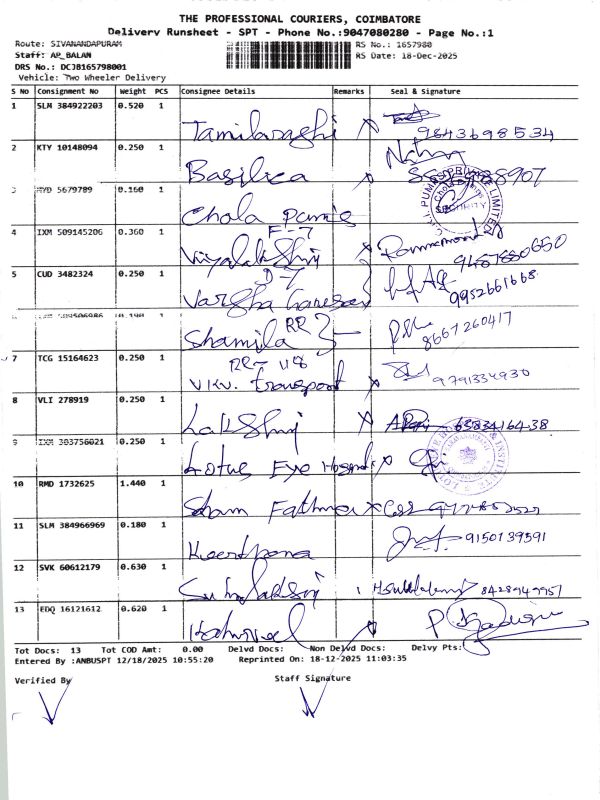 THE PROFESSIONAL COURIERS, COIMBATORE
Delivery Runsheet - SPT - Phone No.:9047080280 - Page No.:1
Route: SIVANANDAPURAM RS No.: 1657980
Staff: AP_BALAN RS Date: 18-Dec-2025
DRS No.: DCJB165798001
Vehicle: Two Wheeler Delivery
S No Consignment No Weight PCS Consignee Details Remarks Seal & Signature
1 SLM 384922203 0.520 1
Tamilarashi 9843698534
2 KTY 10148094 0.250 1
Basilica
3 HYD 5679789 0.160 1
Chola Pumps
4 IXM 509145206 0.360 1 F-7
Vijayalakshmi 9487880650
5 CUD 3482324 0.250 1 D-7
Varsha Ganesan 9952661668
0.190 1
Shamila RR 8667260417
7 TCG 15164623 0.250 1 RR-118
VKV. transport 9791334930
8 VLI 278919 0.250 1
Lakshmi 6383416438
9 IXM 303756021 0.250 1
Lotus Eye Hospital
10 RMD 1732625 1.440 1
Sham Fathima
11 SLM 384966969 0.180 1
Keerthana 9150139591
12 SVK 60612179 0.630 1
8428949957
13 EDQ 16121612 0.620 1
Tot Docs: 13 Tot COD Amt: 0.00 Delvd Docs: Non Delvd Docs: Delvy Pts:
Entered By :ANBUSPT 12/18/2025 10:55:20 Reprinted On: 18-12-2025 11:03:35
Verified By Staff Signature